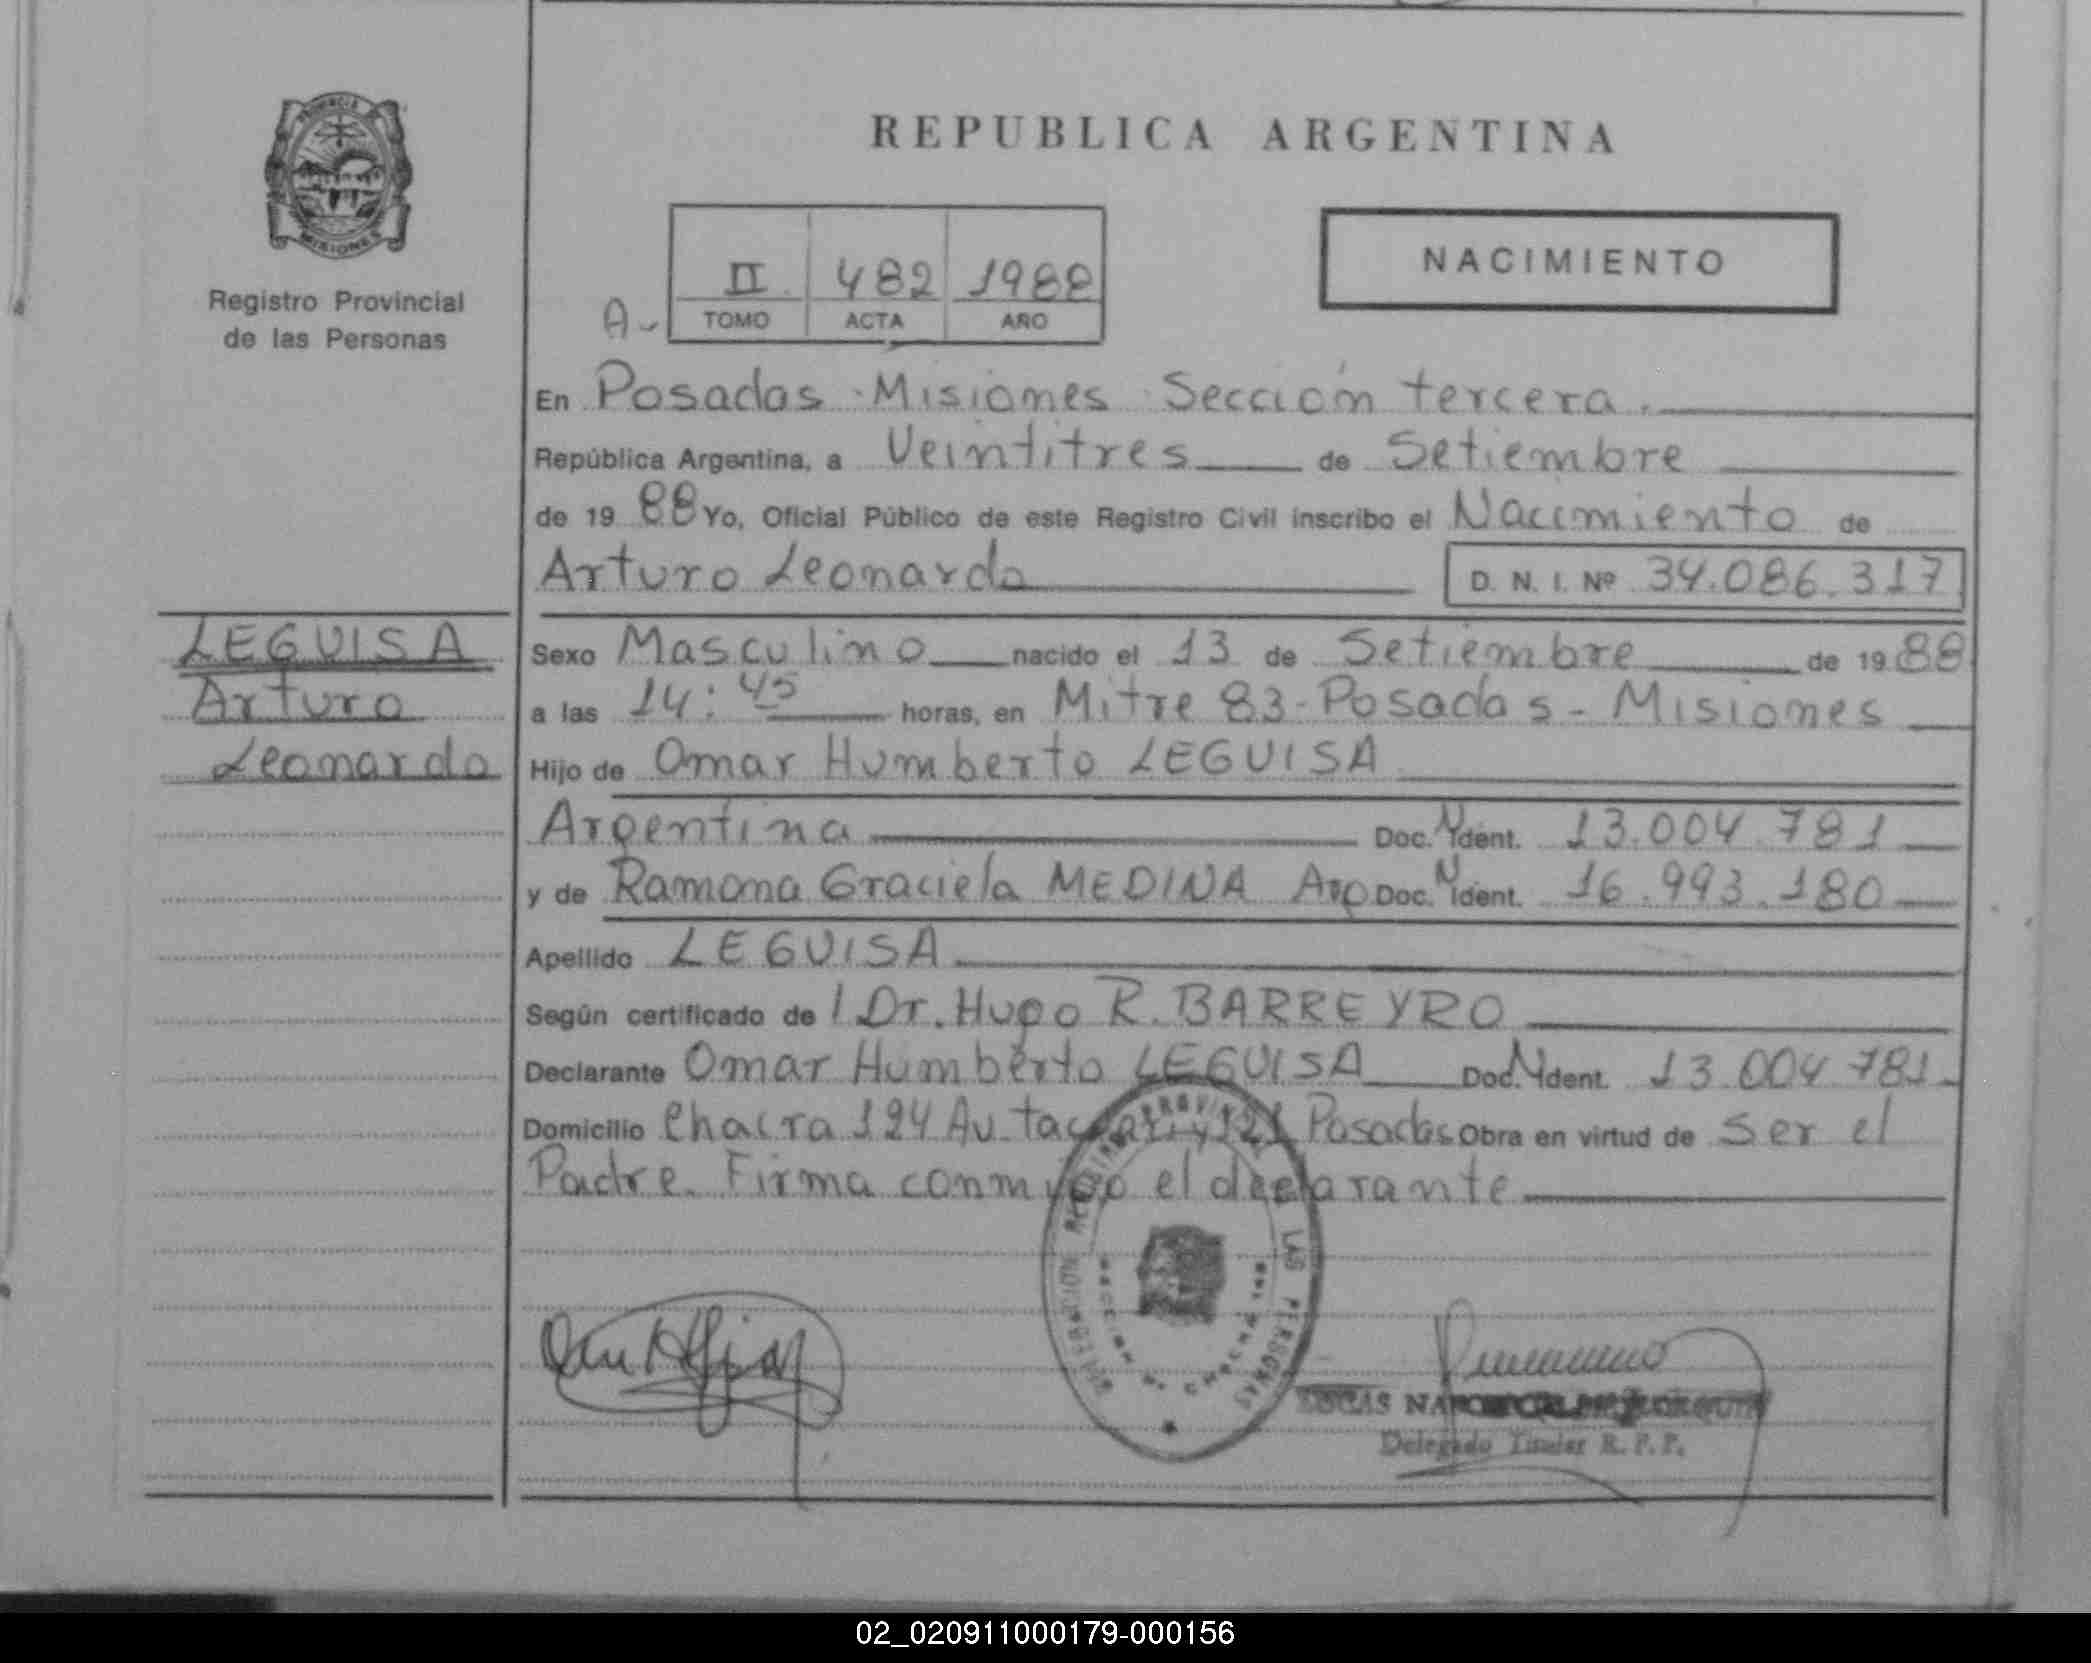 PROVINCIA
MISIONES
Registro Provincial
de las Personas
REPUBLICA ARGENTINA
NACIMIENTO
A- II 482 1988
TOMO ACTA AÑO
En Posadas - Misiones Sección tercera.
República Argentina, a Veintitres de Setiembre
de 1988 Yo, Oficial Público de este Registro Civil inscribo el Nacimiento de
Arturo Leonardo D. N. I. Nº 34.086.317
LEGUISA
Arturo
Leonardo
Sexo Masculino nacido el 13 de Setiembre de 1988
a las 14:45 horas, en Mitre 83 - Posadas - Misiones
Hijo de Omar Humberto LEGUISA
Argentina Doc. N Ident. 13.004.781
y de Ramona Graciela MEDINA Arg Doc. N Ident. 16.993.180
Apellido LEGUISA
Según certificado de l Dr. Hugo R. BARREYRO
Declarante Omar Humberto LEGUISA Doc. N Ident. 13.004.781
Domicilio Chacra 124 Av. y 121 Posadas Obra en virtud de Ser el
Padre. Firma conmigo el declarante
LAS PERSONAS
LUCAS
Delegado Titular R. P. P.
02_020911000179-000156